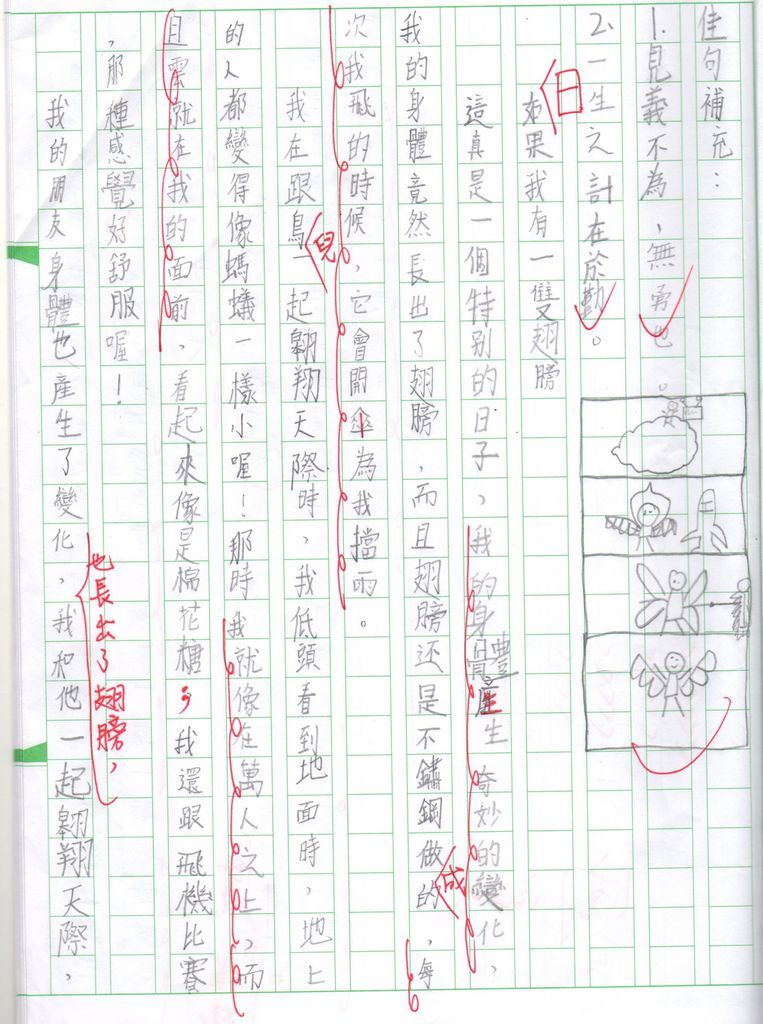 佳句補充：
1.見義不為，無勇也。
2.一生之計在於勤。
如果我有一雙翅膀
日
這真是一個特別的日子，我的身體產生奇妙的變化，
我的身體竟然長出了翅膀，而且翅膀还是不鏽鋼做的，每
成
次我飛的時候，它會開傘為我擋雨。
我在跟鳥一起翱翔天際時，我低頭看到地面時，地上
兒
的人都變得像螞蟻一樣小喔！那時我就像在萬人之上，而
且雲就在我的面前，看起來像是棉花糖，我還跟飛機比賽
，那種感覺好舒服喔！
我的朋友身體也產生了變化，我和他一起翱翔天際，
也長出了翅膀，